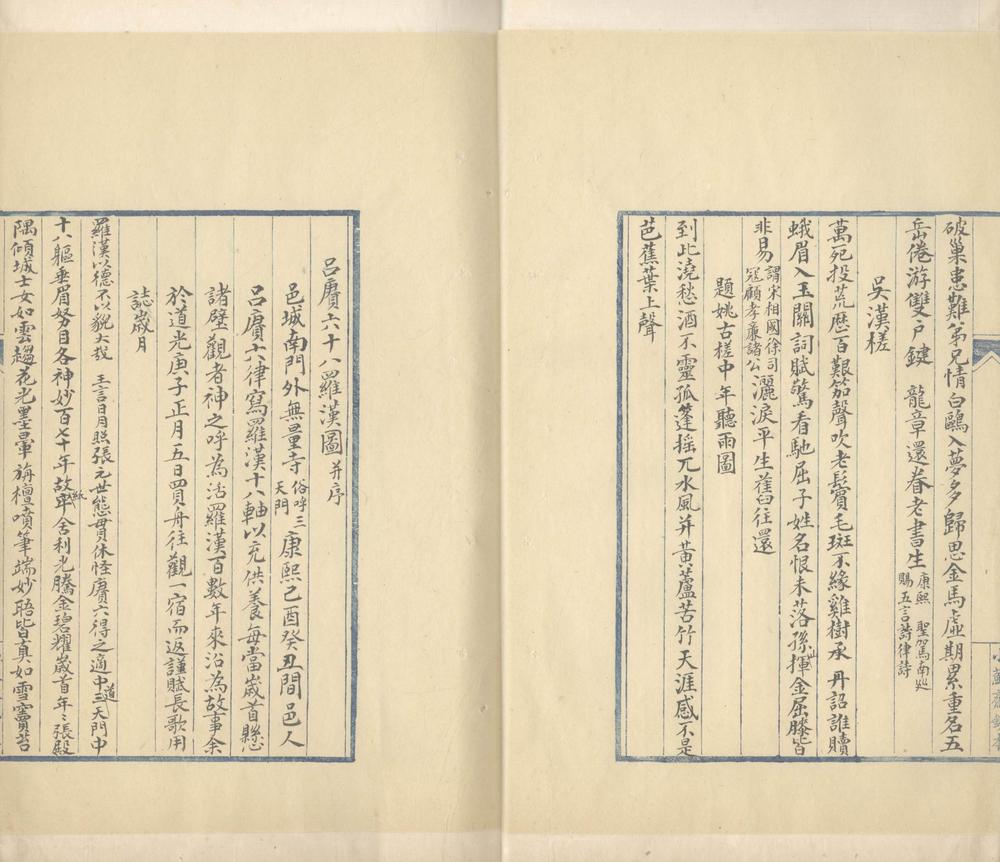 破巢患難弟兄情白鷗入夢多歸思金馬虛期累重名五
岳倦游雙戶鍵　龍章還眷老書生康熙　聖駕南巡
賜五言詩律詩
吳漢槎
萬死投荒歷百艱笳聲吹老鬢毛斑不緣雞樹承　丹詔誰贖
蛾眉入玉關詞賦驚看馳屈子姓名恨未落孫山揮金屈滕皆
非易謂宋相國徐司
寇顧孝廉諸公灑淚平生舊往還
題姚古槎中年聽雨圖
到此澆愁酒不靈孤篷搖兀水風并黃蘆苦竹天涯感不是
芭蕉葉上聲
呂賡六十八羅漢圖并序
邑城南門外無量寺俗呼三
天門康熙己酉癸丑間邑人
呂賡六律寫羅漢十八軸以充供養每當歲首懸
諸壁觀者神之呼為活羅漢百數年來沿為故事余
於道光庚子正月五日買舟往觀一宿而返謹賦長歌用
誌歲月
羅漢以德不以貌大哉　王言日月照張元世態貫休怪賡六得之適中道三天門中
十八軀垂眉努目各神妙百七十年故紙牢舍利光騰金碧耀歲首年〻張殿
隅傾城士女如雲趨花光墨暈旃檀噴筆端妙晤皆真如雪竇苔